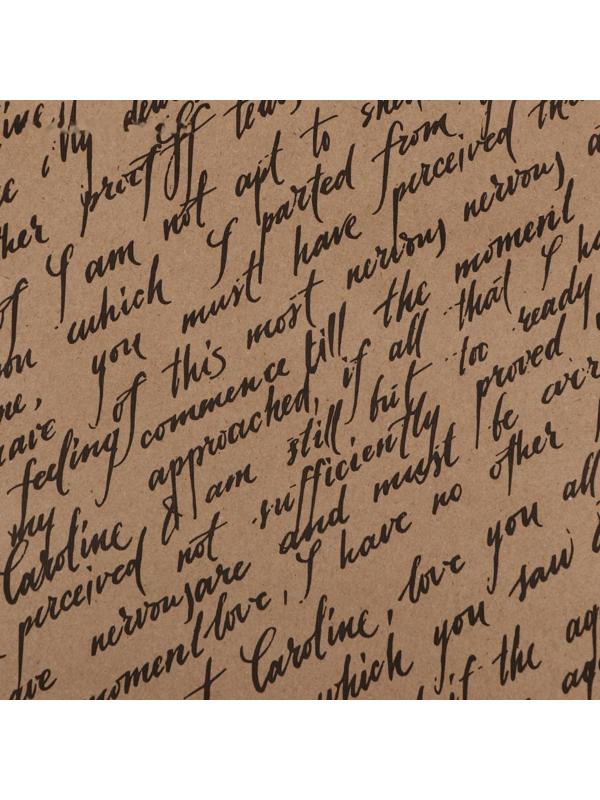 my dear
her proof If tears
of I am not apt to shed
which I parted from
you must have perceived
have of this most nervous nervous,
feeling commence till the moment
my approached, if all that I
Caroline & am still but too ready
perceived not sufficiently proved
nervous are and must be
moment love, I have no other
Caroline, love you all
which you saw
if the